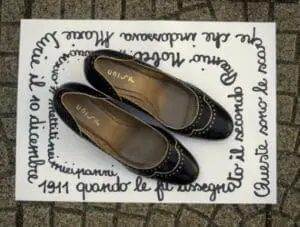 Queste sono le scar
pe che indossava Marie
Curie il 10 dicembre
1911 quando le fu assegnato il secondo
Premio Nobel
#mettitineimieipanni
UNISA
UNISA